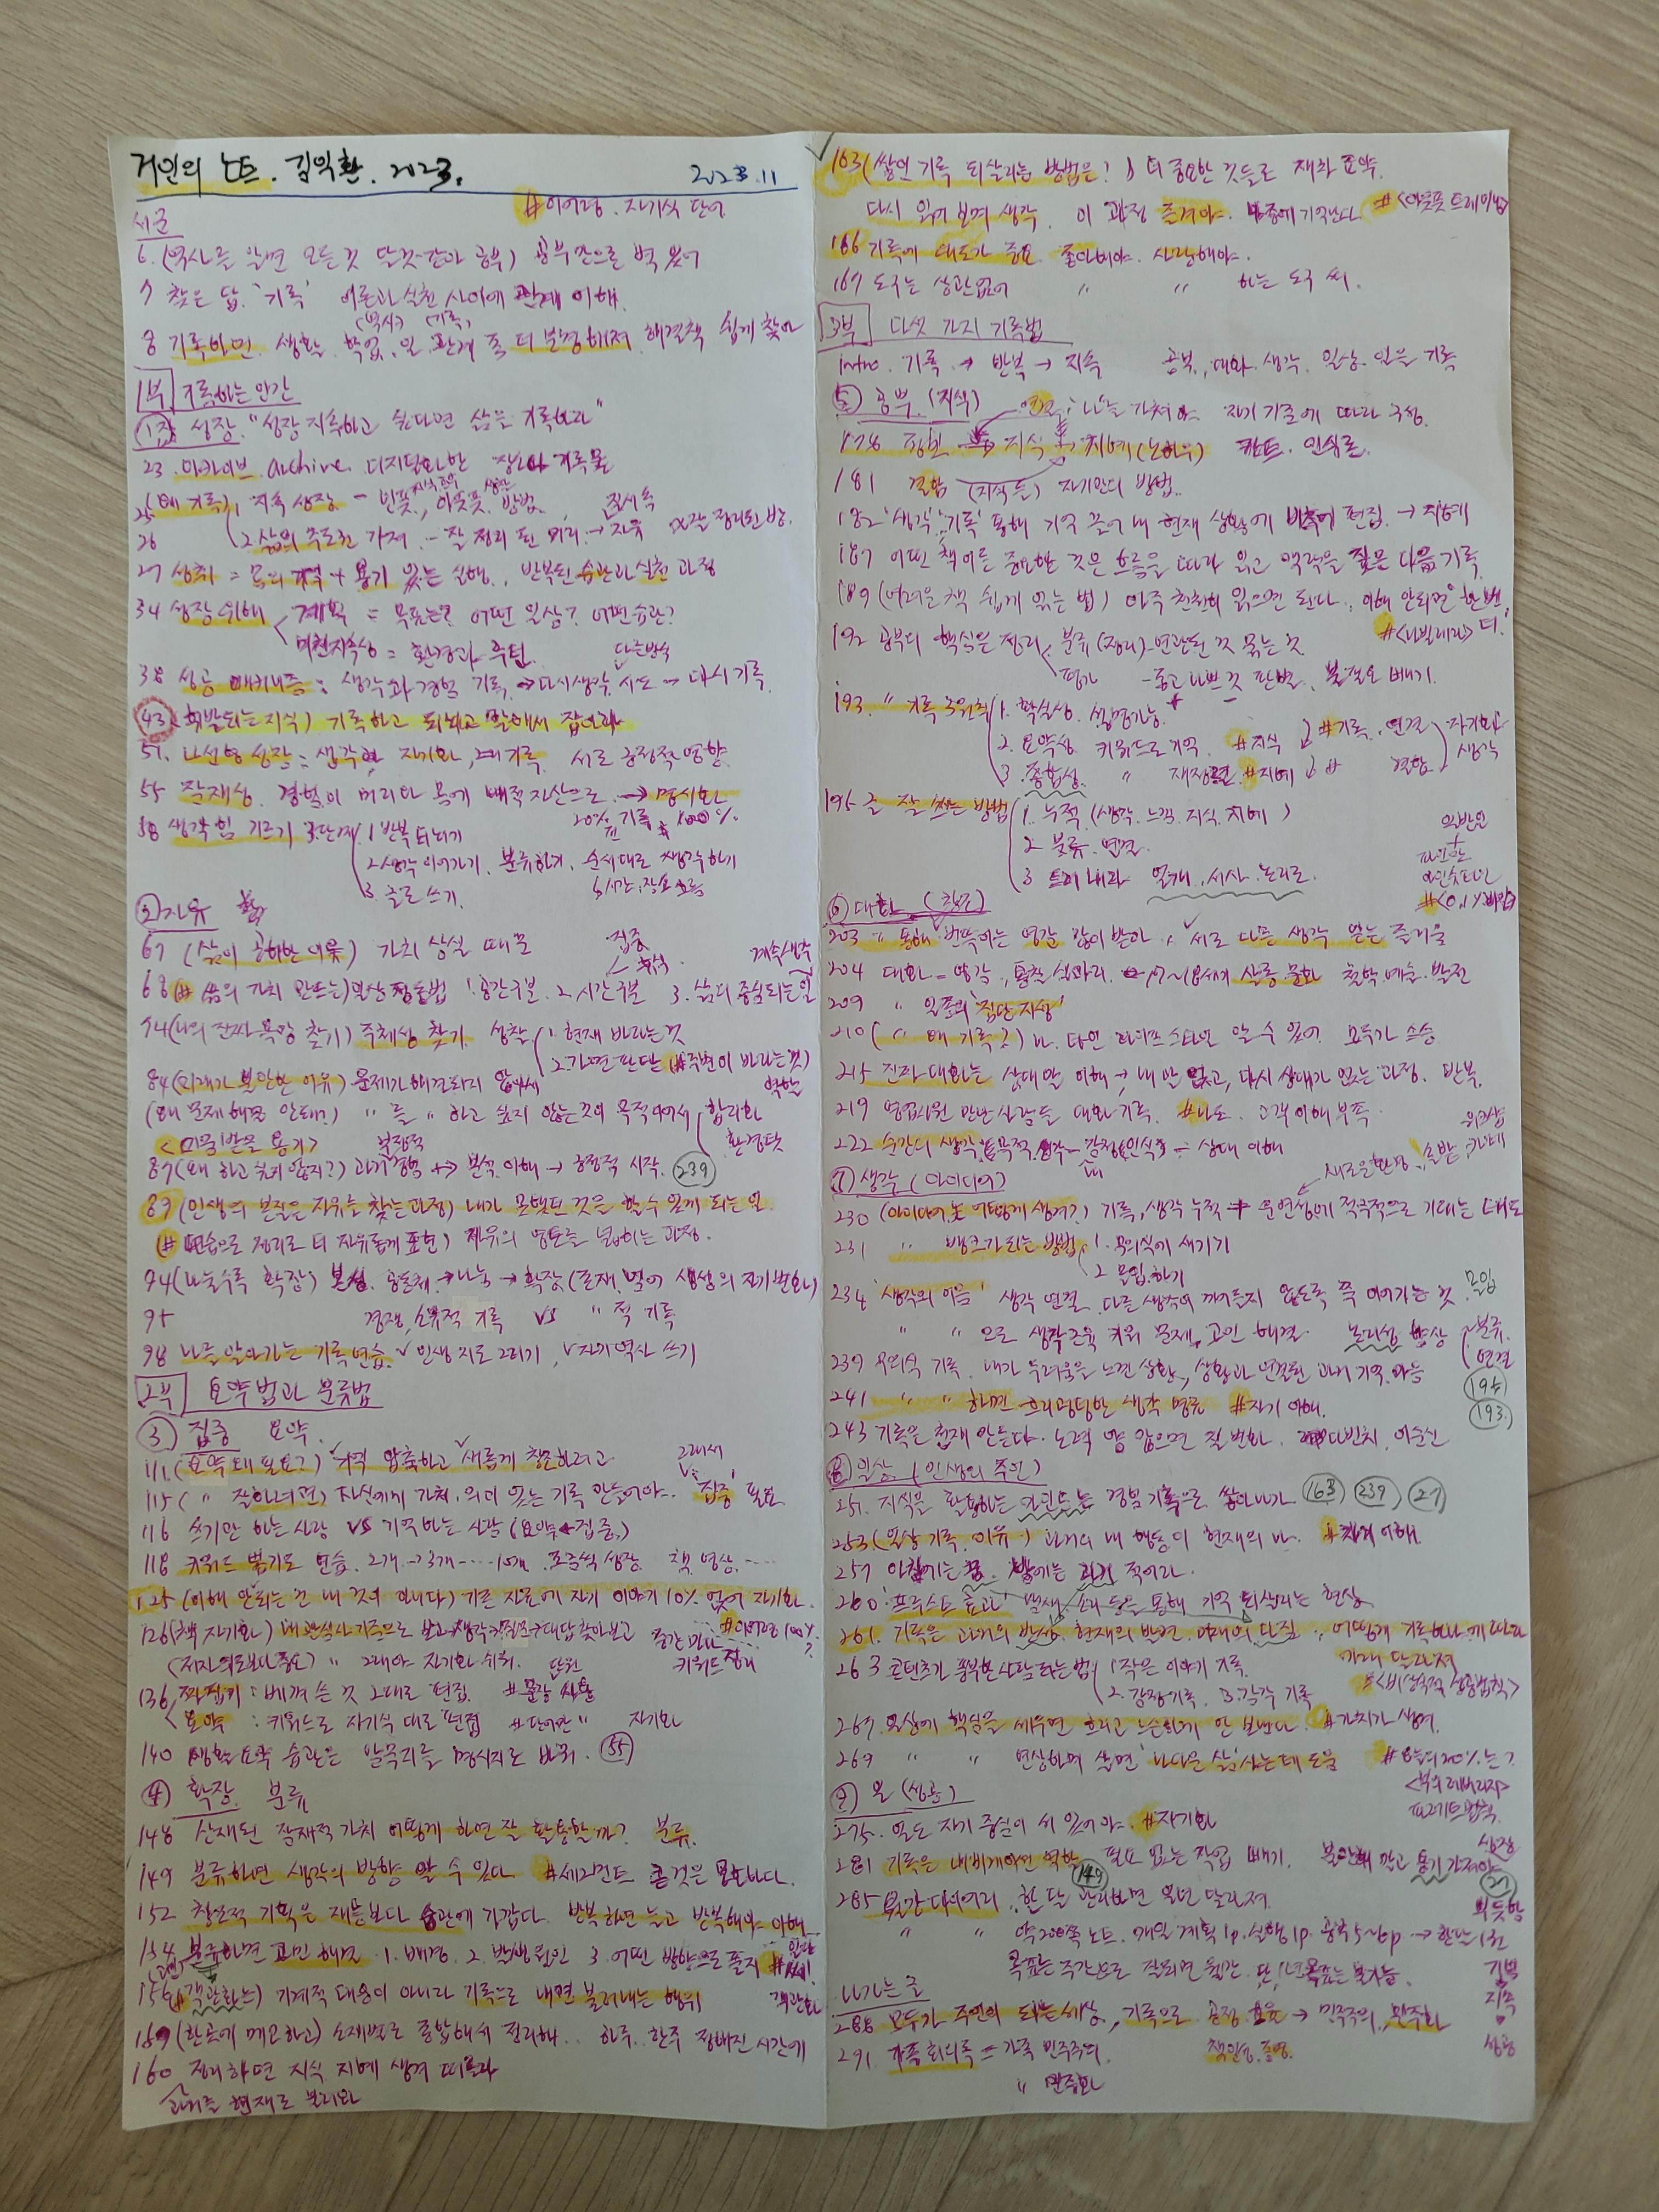 거인의 노트. 김익환. 2023.
2023.11
#아이라벨. 자기식 단어
서문
6. (역사를 알면 모든 것 알것 같아 공부) 공부만으로 벽 있어
7 찾은 답. '기록' 이론과 실천 사이에 관계 이해.
(역사) (기록)
8 기록하면. 생활. 학업. 일. 관계 좀 더 분명해져. 해결책 쉽게 찾아
1부 기록하는 인간
(1장) 성장. "성장 지속하고 싶다면 삶을 기록하라"
23. 아카이브. archive. 디지털화한
25 (왜 기록) 1. 지속 성장 - 인풋, 아웃풋 방법.
26 2. 삶의 주도권 가져 - 잘 정리 된 머리 → 자유 잘 정리된 방.
27 성취 = + 용기 있는 실행., 반복된 습관과 실천 과정
34 성장 위해 계획 = 목표는? 어떤 일상? 어떤 습관?
= 환경과 루틴
단순반복
38 성공 메커니즘 : 생각과 경험 기록. → 다시 생각. 시도 → 다시 기록.
43. 휘발되는 지식) 기록하고 되뇌고 말해서 잡아라
51. 나선형 성장 = 생각, 자기화, 기록. 서로 긍정적 영향.
55 잠재성. 경험이 머리나 몸에 배적 자산으로. → 명시화
58 생각 힘 기르기 3단계 1 반복 되뇌기
20% 기록 100%
2 생각 이어가기. 분류하기. 순서대로 생각하기
시간, 장소 흐름
3. 글로 쓰기.
② 자유
67 (삶이 공허한 이유) 가치 상실 때문
집중
휴식.
계속 생각
68 (# 삶의 가치 만드는) 일상 정돈법 1. 공간 구분. 2. 시간 구분 3. 삶의 중심되는 일
74 (나의 진짜 욕망 찾기) 주체성 찾기. 성찰 1. 현재 바라는 것
2. 가면 판단 (#주변이 바라는 것)
역할
84 (미래가 불안한 이유) 문제가 해결되지 않아서
(왜 문제 해결 안돼?) " 를 " 하고 싶지 않은 것의 목적 있어서 합리화
<미움받을 용기>
환경탓
부정적
87 (왜 하고 싶지 않지?) 과거 경험 → 분석. 이해 → 긍정적 시작. (239)
89 (인생의 본질은 자유를 찾는 과정) 내가 못했던 것을 할 수 있게 되는 일.
(# 연습으로 정리로 더 자유롭게 표현) 자유의 영토를 넓히는 과정.
94 (나눌수록 확장) 본성. 공동체 → 나눔 → 확장
95 경쟁, 소유적 기록 VS " 적 기록
98 나를 알아가는 기록 연습. ✓ 인생 지도 그리기, ✓ 자기 역사 쓰기
2부 요약법과 분류법
③ 집중 요약.
111 (요약 왜 필요?) 기억 압축하고 ✓ 새롭게 창조하려고
115 ( " 잘하려면) 자신에게 가치. 의미 있는 기록 만들어야. '집중' 필요
116 쓰기만 하는 사람 VS 기억하는 사람 (요약 + 집중.)
118 키워드 뽑기도 연습. 2개 → 3개 → ···· 10개. 조금씩 성장. 책. 영상. ····
125 (이해 안되는 건 내 것이 아니다) 기존 자료에 자기 이야기 10% 얹어 자기화.
126 (책 자기화) 내 관심사 기준으로 보고 → 생각 → 질문 → 대답 찾아보고
키워드 정리
(저자 의도보다 중요) " 그래야 자기화 쉬워.
136 짜깁기 : 베껴 쓰는 것 그대로 편집. #문장 사용
요약 : 키워드로 자기식 대로 편집 #단어만 " 자기화
140 생활 요약 습관은 암묵지를 명시지로 바꿔. (55)
④ 확장. 분류
148 산재된 잠재적 가치 어떻게 하면 잘 활용할까? 분류.
149 분류하면 생각의 방향 알 수 있다 #세그먼트 큰 것은 모호하다.
152 창조적 기획은 재능보다 습관에 가깝다. 반복하면 늘고 반복해야 이해
154 분류하면 고민 해결 1. 배경. 2. 발생 원인 3. 어떤 방향으로 풀지
156 (객관화는) 기계적 대응이 아니라 기록으로 내면 불러내는 행위
객관화
159 (한곳에 메모하고) 소재별로 종합해서 정리해. 하루. 한주 정해진 시간에
160 정리하면 지식 지혜 생겨 떠올라
과거를 현재로 불러와
163 (쌓인 기록 되살리는 방법은?) 더 중요한 것들로 재차 요약.
다시 읽어 보며 생각. 이 과정 즐겨야. 나중에 기억난다. #<아웃풋 트레이닝>
166 기록에 태도가 중요. 좋아해야. 사랑해야.
167 도구는 상관없어 " " 하는 도구 써.
3부 다섯 가지 기록법
intro. 기록. → 반복 → 지속 공부, 대화. 생각. 일상. 일을 기록
⑤ 공부. (지식)
178 정보 → 지식 → 지혜 (노하우) 칸트. 인식론.
181 결합 (지식들) 자기만의 방법.
182 '생각', '기록' 통해 기억 끌어내 현재 상황에 비추어 편집. → 지혜
187 어떤 책이든 중요한 것은 흐름을 따라 읽고 맥락을 짚은 다음 기록
189 (어려운 책 쉽게 읽는 법) 아주 천천히 읽으면 된다. 이해 안되면 한번 더.
192 공부의 핵심은 정리 분류 (정리) - 연관된 것 묶는 것
평가 - 좋고 나쁜 것 판별, 불필요 빼기.
193. " 기록 3원칙 1. 확실성. 설명가능.
2. 요약성. 키워드로 기억. #지식 #기록. 연결
3. 종합성. " 재정렬. #지혜 결합
자기화 생각
195 글 잘 쓰는 방법 1. 누적 (생각. 느낌. 지식. 지혜)
2. 분류. 연결.
3 얼개. 서사. 논리로.
⑥ 대화
203 " 통해 번뜩이는 영감 많이 받아. ✓ 서로 다른 생각 얻는 즐거움
204 대화 = 영감, 통찰 실마리. 17~18세기 살롱 문화 철학. 예술. 발전
209 " 일종의 '집단 지성'
210 ( " 왜 기록?) 나. 타인 라이프스타일 알 수 있어. 모두가 스승
215 진짜 대화는 상대 말 이해 → 내 말 얹고, 다시 상대가 얹는 과정. 반복.
219 영업사원 만난 사람들 대화 기록. #나도. 고객 이해 부족.
222 순간의 생각, 목적. 감정 = 상대 이해
⑦ 생각 (아이디어)
230 (아이디어는 어떻게 생겨?) 기록, 생각 누적 + 우연성에 적극적으로 기대는 태도
231 " 뱅크가 되는 방법 1. 무의식에 새기기
2 몰입하기
234 '생각의 이음' 생각 연결. 다른 생각이 끼어들지 않도록 쭉 이어가는 것. 몰입
" " 으로 생각근육 키워 문제, 고민 해결. 논리성 향상 분류. 연결
(195)
(193.)
239 무의식 기록. 내가 두려움을 느낀 상황, 상황과 연결된 과거 기억. 마음
241 " " 하면 흐리멍텅한 생각 명료 #자기 이해.
243 기록은 천재 만든다. 노력 양 많으면 질 변화. 다빈치, 이순신
⑧ 일상 (인생의 주인)
251. 지식을 활용하는 마인드는 경험 기록으로 쌓아나가 (163) (239) (27)
253 (일상 기록. 이유.) 과거의 내 행동이 현재의 나.
257 아침에는 꿈. 밤에는 과거 적어라.
260 '프루스트 효과' 냄새. 소리 등을 통해 기억 되살리는 현상
261. 기록은 과거의 반성. 현재의 발견. 미래의 다짐. 어떻게 기록하나에 따라
미래 달라져
263 콘텐츠가 풍부한 사람 되는 법 1. 작은 이야기 기록.
2. 감정기록. 3. 감각 기록
#<비상식적 성공법칙>
267. 일상에 핵심을 세우면 흐리고 느슨하게 안 보낸다. #가치가 생겨.
269 " " 연상하며 살면 '나다운 삶' 사는데 도움 #오늘의 20%는?
<부의 레버리지>
파레토 법칙
⑨ 일 (성공)
275. 일도 자기 중심이 서 있어야. #자기화
281 기록은 내비게이션 역할. 필요 없는 작업 빼기. 불안해 말고 용기 가져야
(149)
(27)
285 월간 다이어리. 한 달 관리하면 일년 달라져
" 약 200쪽 노트. 매일 계획 1p. 실행 1p. 공부 5~6p → 한달 1권
목표는 주간으로 잘되면 월간.
나가는 글
288 모두가 주인이 되는 세상, 기록으로 공정. 효율 → 민주주의,
291. 가족 회의록 = 가족 민주주의.
책임성. 증명.
성장
뿌듯함
기록
지속
성공